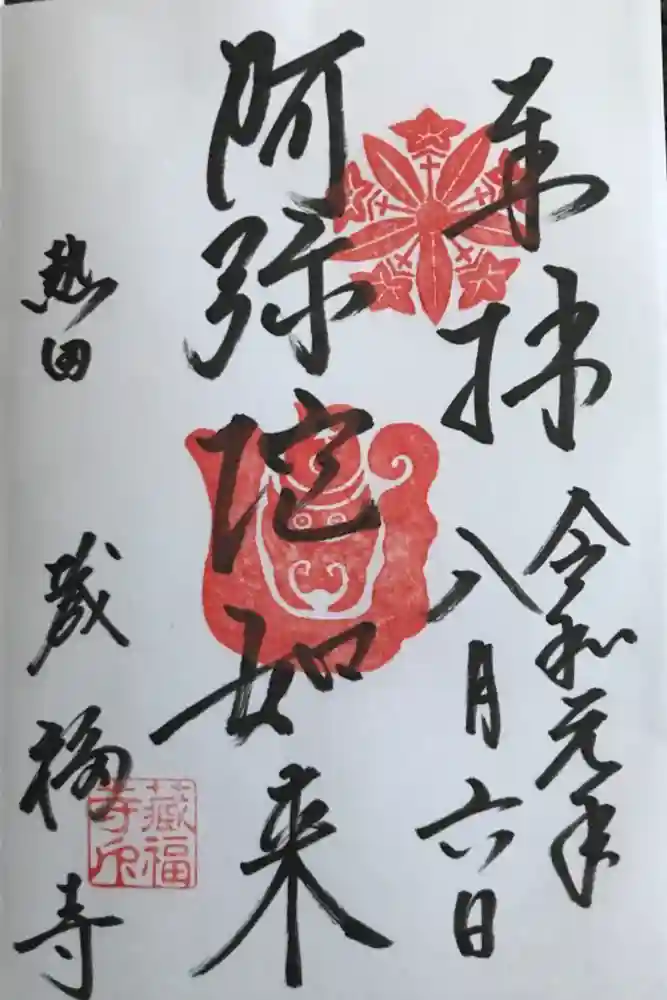 奉拝
令和元年
八月六日
阿弥陀如来
熱田
蔵福寺
藏福
寺印